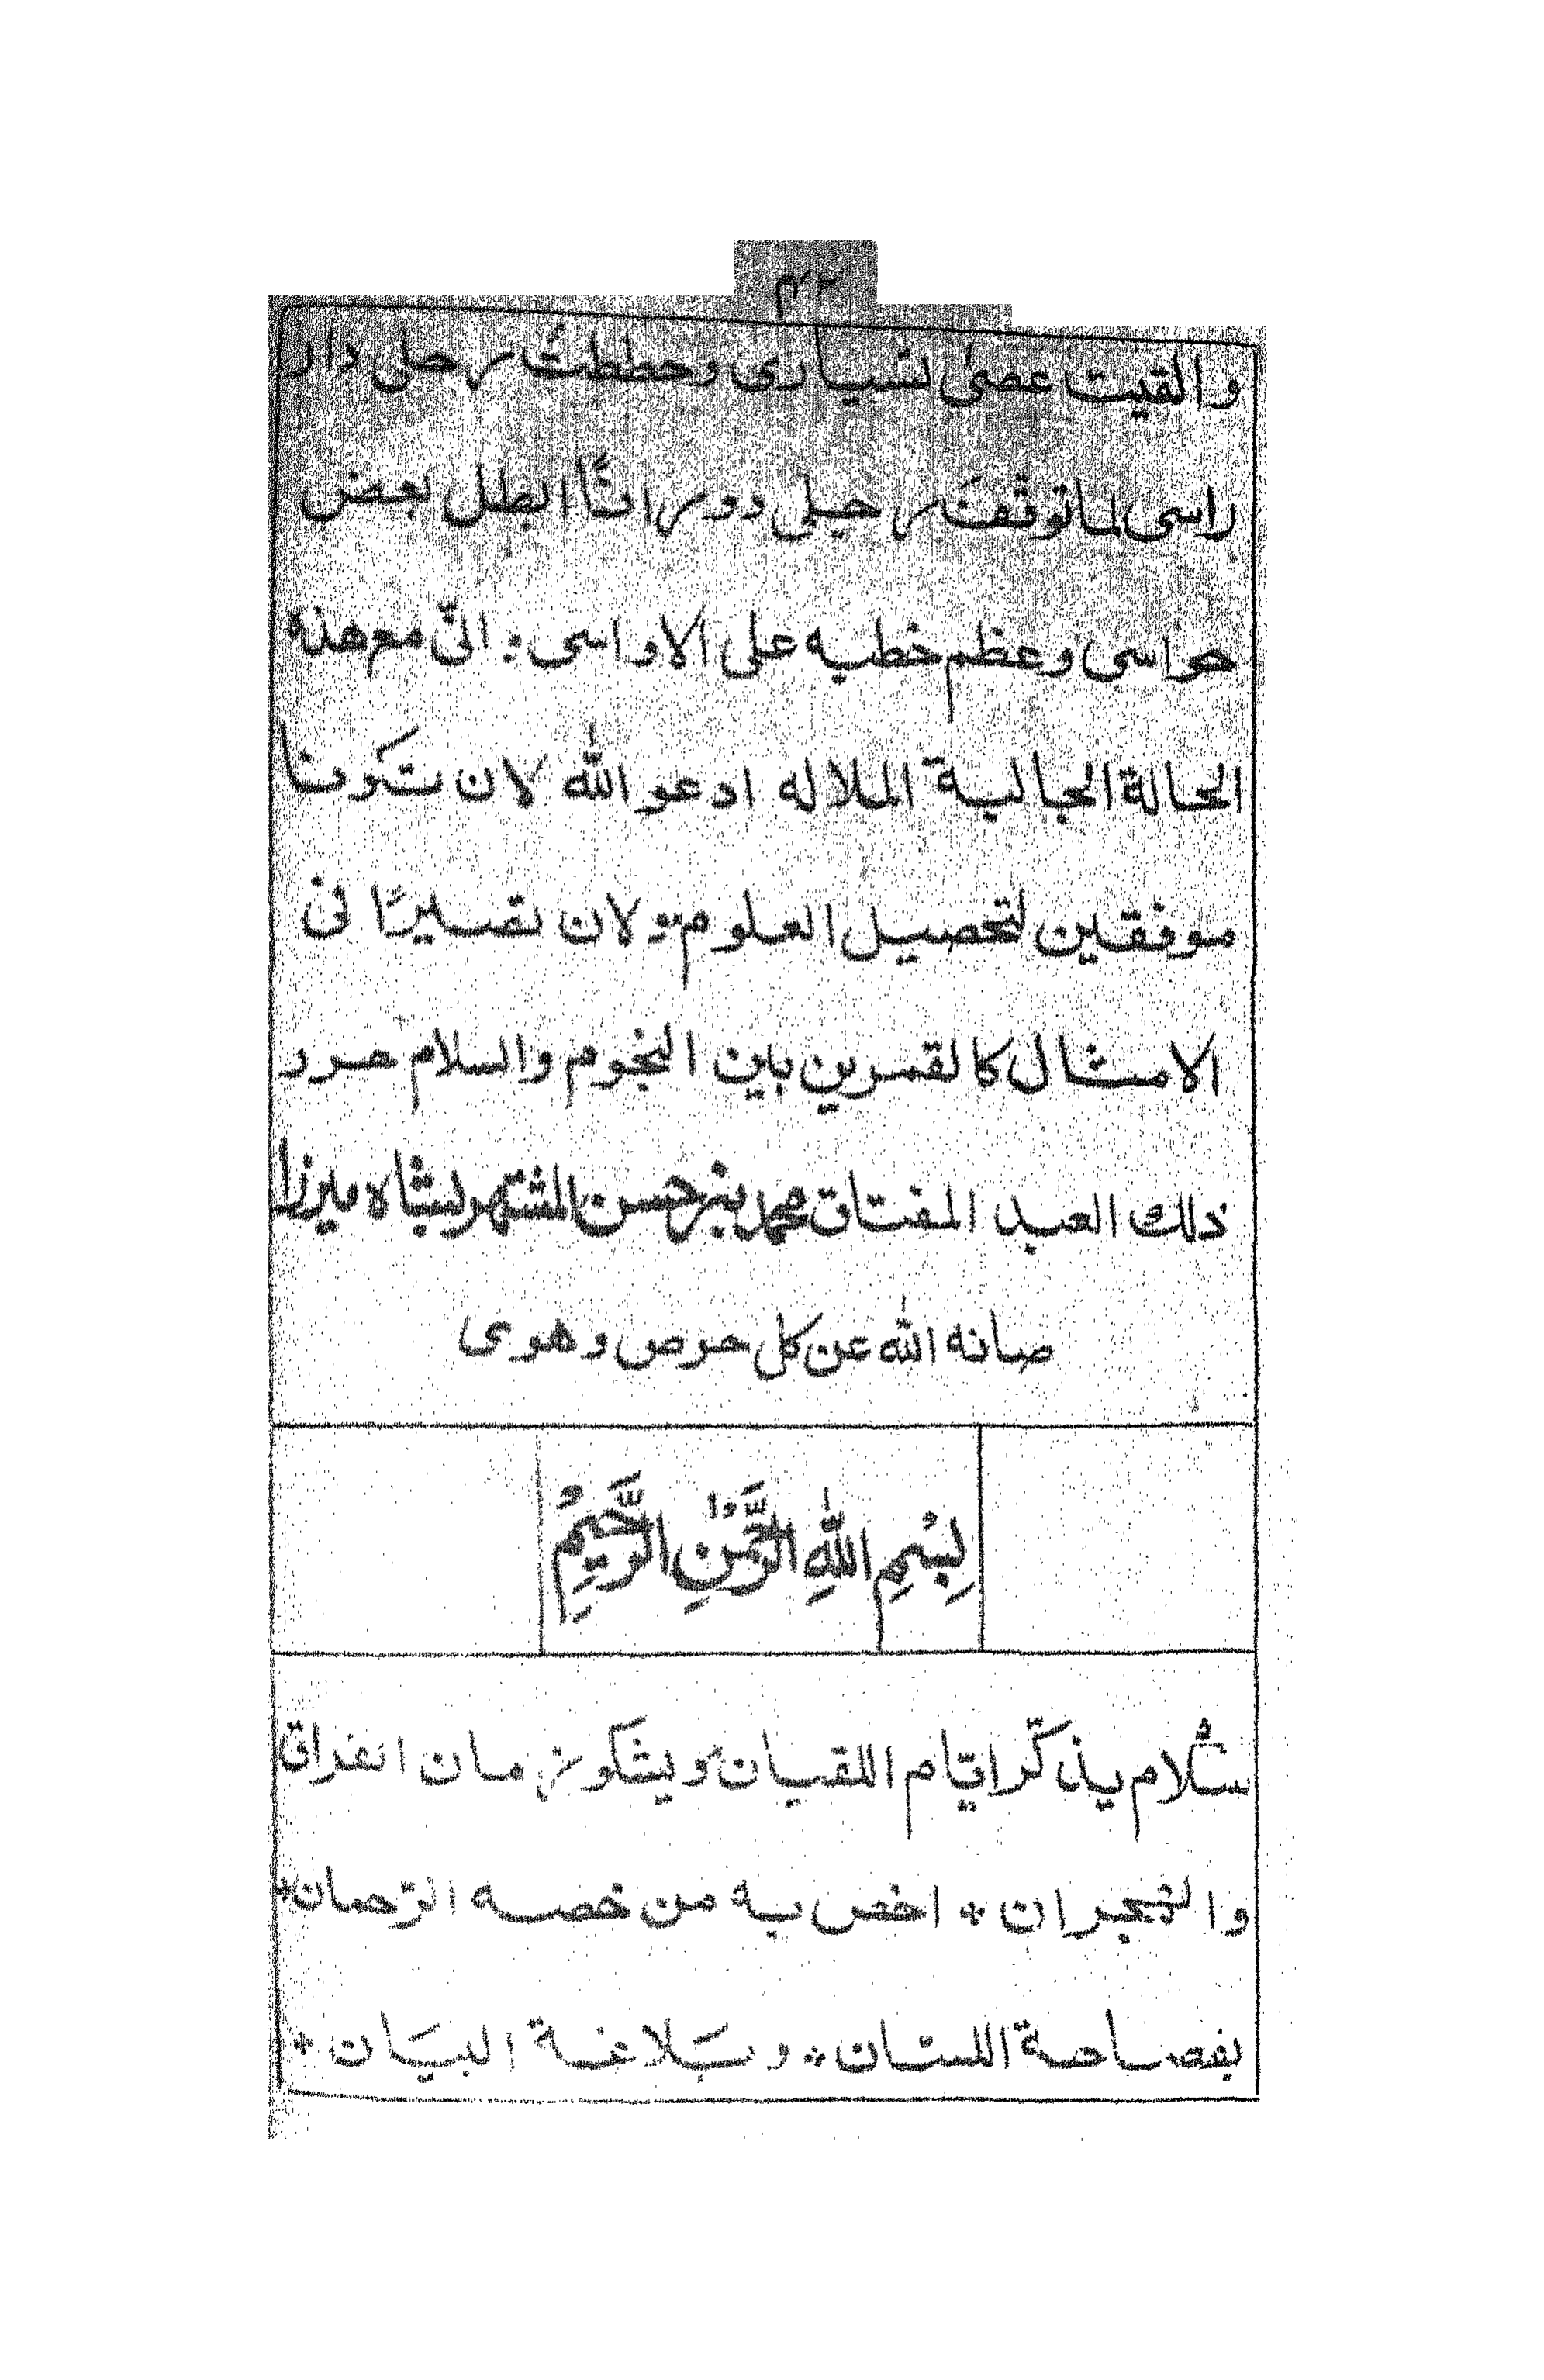 والقيت عصى لتسيارى وحططتُ رحلى دار
راسى لما توقفت رحيلى دورانًا ابطل بعض
حواسى وعظم خطبه على الاواسى : انّى مع هذه
الحالة الجالبة الملاله ادعو الله لان تكونا
موفقين لتحصيل العلوم * ولان تصيرًا فى
الامثال كالقمرين بين النجوم والسلام حرر
ذلك العبد المفتاق محمد بن حسن المشتهر بشاه ميرزا
صانه الله عن كل حرص وهوى
بِسْمِ اللّٰهِ الرَّحْمٰنِ الرَّحِيْمِ
سلام يذكّر ايّام اللقيان * ويشكو زمان الفراق
والهجران * اخص به من خصه الرّحمان *
بفصاحة اللسان * وبَلاغة البيَان *